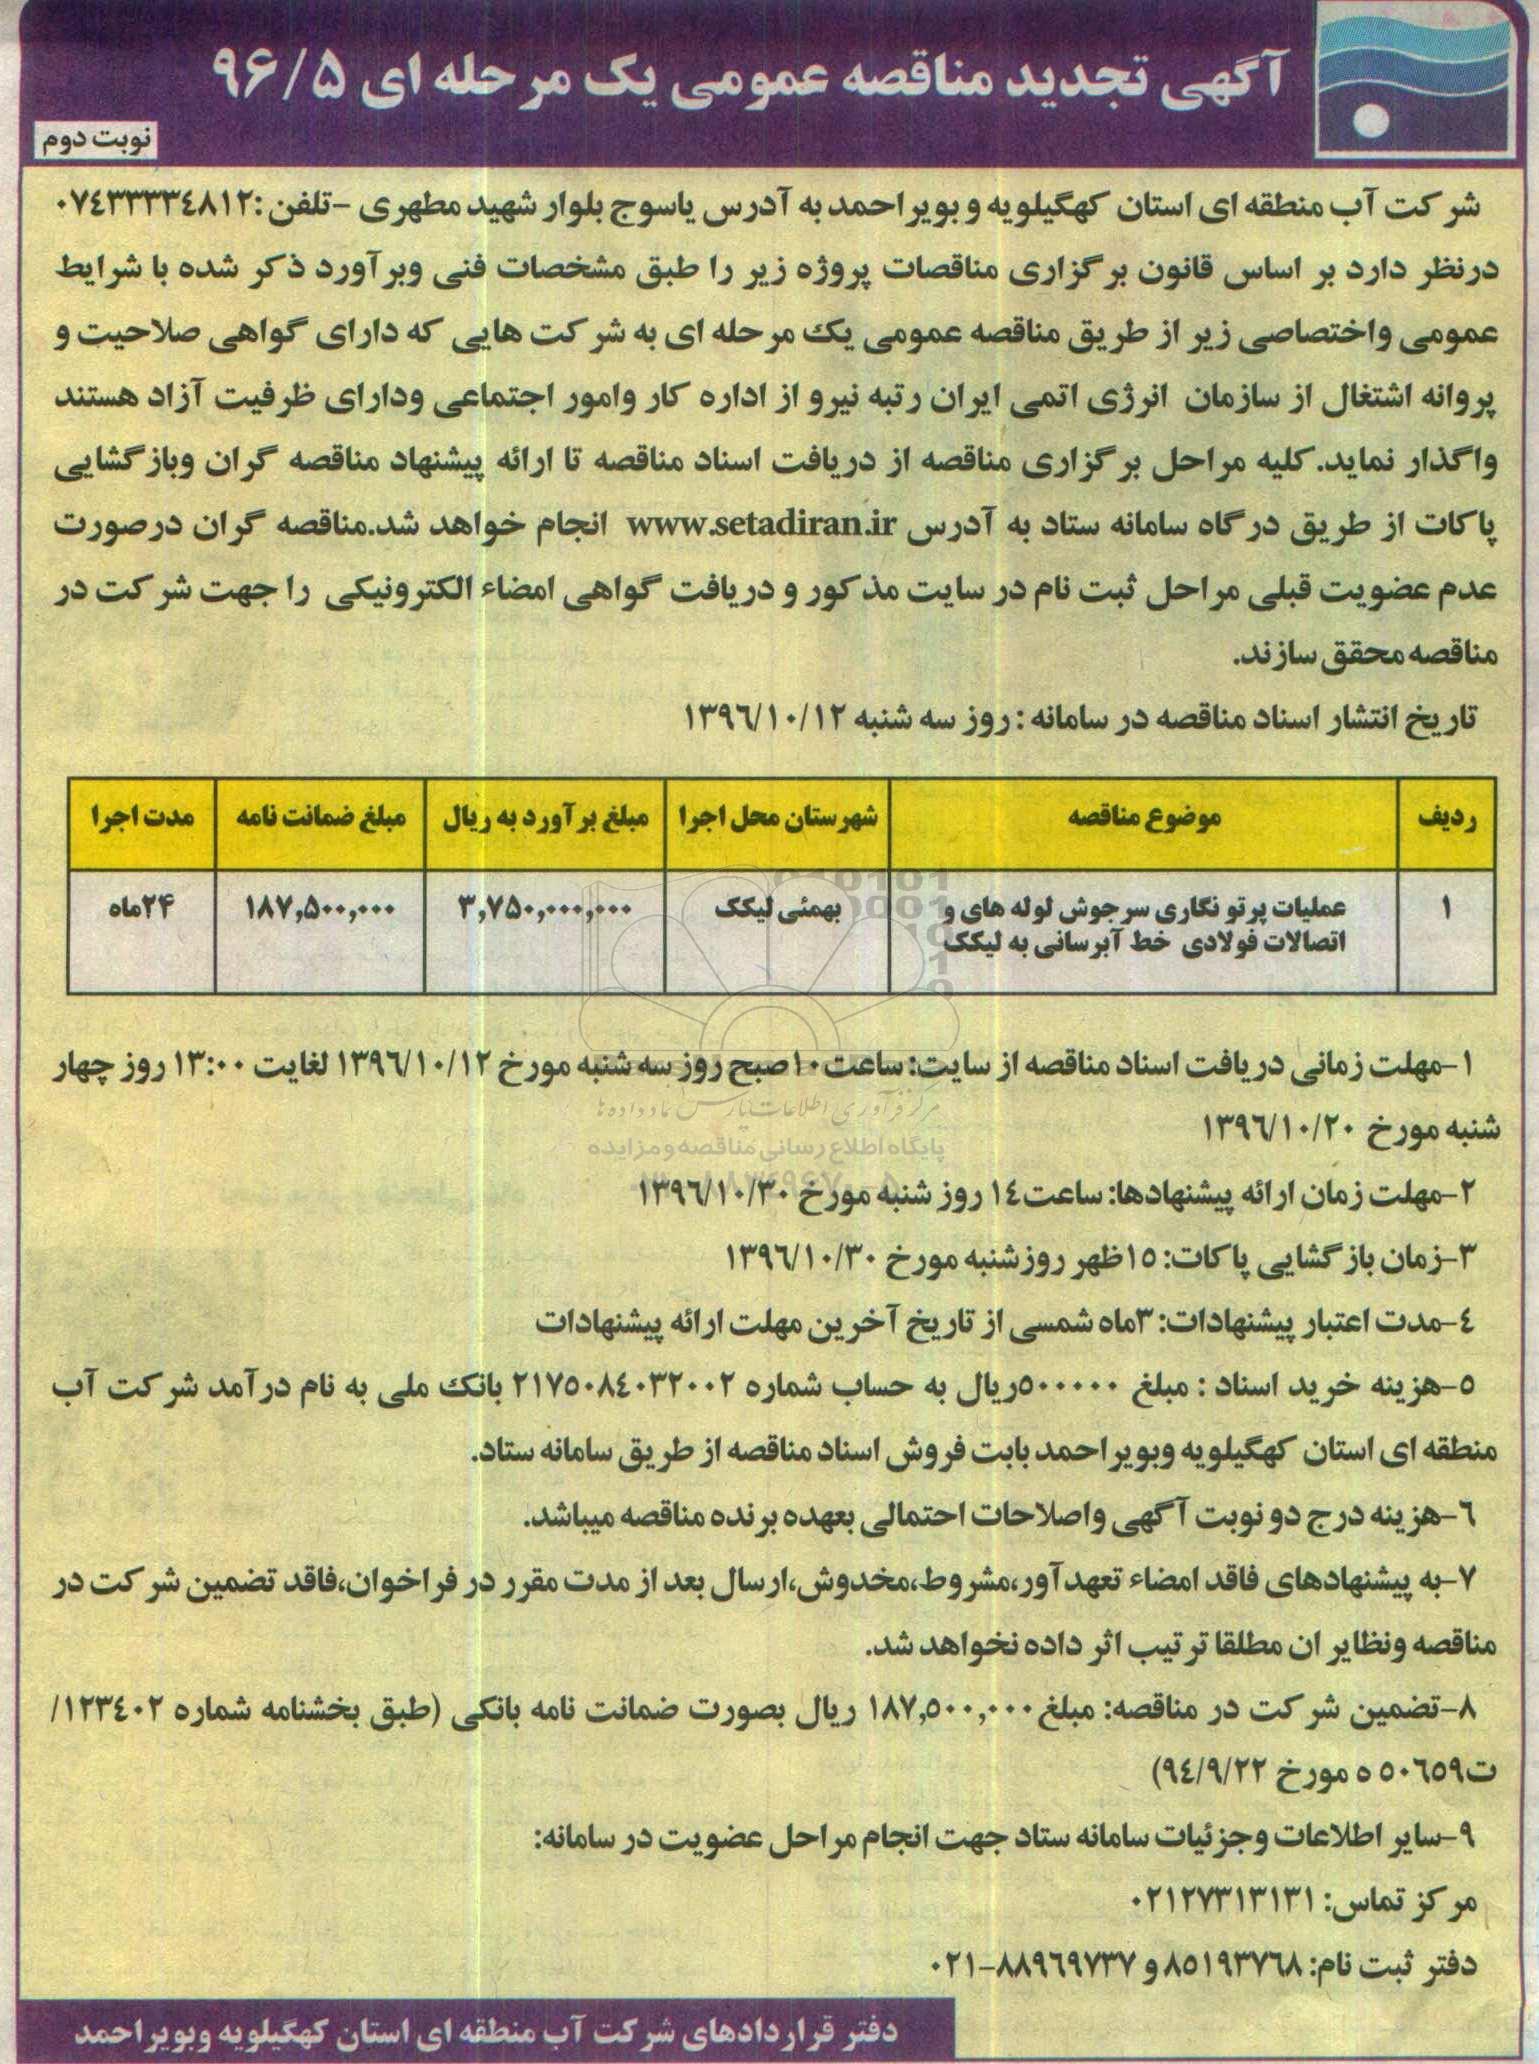 آگهی تجدید مناقصه عمومی یک مرحله ای ۹۶/۵
نوبت دوم
شرکت آب منطقه ای استان کهگیلویه و بویراحمد به آدرس یاسوج بلوار شهید مطهری -تلفن :۰۷٤۳۳۳۳٤۸۱۲
درنظر دارد بر اساس قانون برگزاری مناقصات پروژه زیر را طبق مشخصات فنی وبرآورد ذکر شده با شرایط
عمومی واختصاصی زیر از طریق مناقصه عمومی یک مرحله ای به شرکت هایی که دارای گواهی صلاحیت و
پروانه اشتغال از سازمان انرژی اتمی ایران رتبه نیرو از اداره کار وامور اجتماعی ودارای ظرفیت آزاد هستند
واگذار نماید.کلیه مراحل برگزاری مناقصه از دریافت اسناد مناقصه تا ارائه پیشنهاد مناقصه گران وبازگشایی
پاکات از طریق درگاه سامانه ستاد به آدرس www.setadiran.ir انجام خواهد شد.مناقصه گران درصورت
عدم عضویت قبلی مراحل ثبت نام در سایت مذکور و دریافت گواهی امضاء الکترونیکی را جهت شرکت در
مناقصه محقق سازند.
تاریخ انتشار اسناد مناقصه در سامانه : روز سه شنبه ۱۳۹٦/۱۰/۱۲
ردیف موضوع مناقصه شهرستان محل اجرا مبلغ برآورد به ریال مبلغ ضمانت نامه مدت اجرا
۱ عملیات پرتو نگاری سرجوش لوله های و بهمئی لیکک ۳,۷۵۰,۰۰۰,۰۰۰ ۱۸۷,۵۰۰,۰۰۰ ۲۴ماه
اتصالات فولادی خط آبرسانی به لیکک
۱-مهلت زمانی دریافت اسناد مناقصه از سایت: ساعت۱۰صبح روز سه شنبه مورخ ۱۳۹٦/۱۰/۱۲ لغایت ۱۳:۰۰ روز چهار
مرکز فرآوری اطلاعات پارس نماد داده ها
شنبه مورخ ۱۳۹٦/۱۰/۲۰
پایگاه اطلاع رسانی مناقصه و مزایده
۲-مهلت زمان ارائه پیشنهادها: ساعت۱٤ روز شنبه مورخ ۱۳۹٦/۱۰/۳۰
۳-زمان بازگشایی پاکات: ۱۵ظهر روزشنبه مورخ ۱۳۹٦/۱۰/۳۰
٤-مدت اعتبار پیشنهادات: ۳ماه شمسی از تاریخ آخرین مهلت ارائه پیشنهادات
۵-هزینه خرید اسناد : مبلغ ۵۰۰۰۰۰ریال به حساب شماره ۲۱۷۵۰۸٤۰۳۲۰۰۲ بانک ملی به نام درآمد شرکت آب
منطقه ای استان کهگیلویه وبویراحمد بابت فروش اسناد مناقصه از طریق سامانه ستاد.
٦-هزینه درج دو نوبت آگهی واصلاحات احتمالی بعهده برنده مناقصه میباشد.
۷-به پیشنهادهای فاقد امضاء تعهدآور،مشروط،مخدوش،ارسال بعد از مدت مقرر در فراخوان،فاقد تضمین شرکت در
مناقصه ونظایر ان مطلقا ترتیب اثر داده نخواهد شد.
۸-تضمین شرکت در مناقصه: مبلغ ۱۸۷,۵۰۰,۰۰۰ ریال بصورت ضمانت نامه بانکی (طبق بخشنامه شماره ۱۲۳٤۰۲/
ت۵۰٦۵۹ ه مورخ ۹٤/۹/۲۲)
۹-سایر اطلاعات وجزئیات سامانه ستاد جهت انجام مراحل عضویت در سامانه:
مرکز تماس: ۰۲۱۲۷۳۱۳۱۳۱
دفتر ثبت نام: ۸۵۱۹۳۷٦۸ و ۸۸۹٦۹۷۳۷-۰۲۱
دفتر قراردادهای شرکت آب منطقه ای استان کهگیلویه وبویراحمد